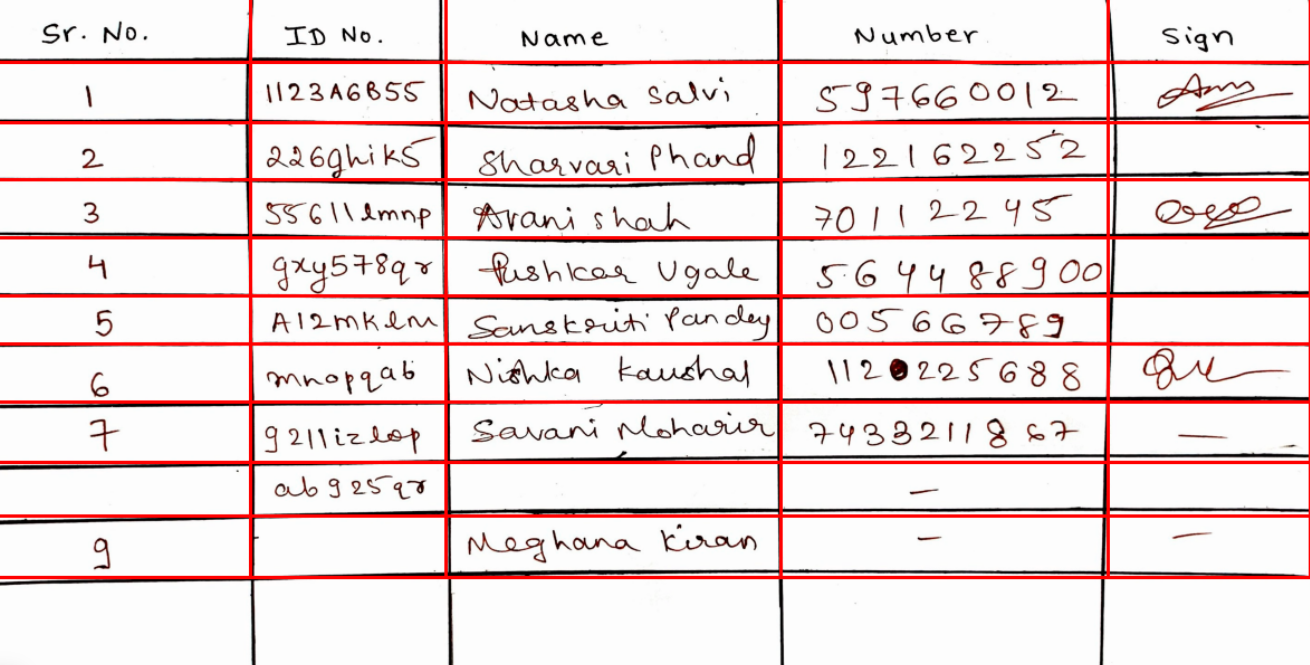 Sr. No. ID No. Name Number Sign
1 1123A6B55 Natasha Salvi 597660012
2 226ghik5 Sharvari Phand 122162252
3 55611lmnp Avani shah 70112245
4 gxy578qr Pushkar Ugale 564488900
5 A12mklm Sanskriti Pandey 00566789
6 mnopqab Nishka Kaushal 112 225688
7 9211izlop Savani Moharir 7433211867
ab925qr —
9 Meghana Kiran — —